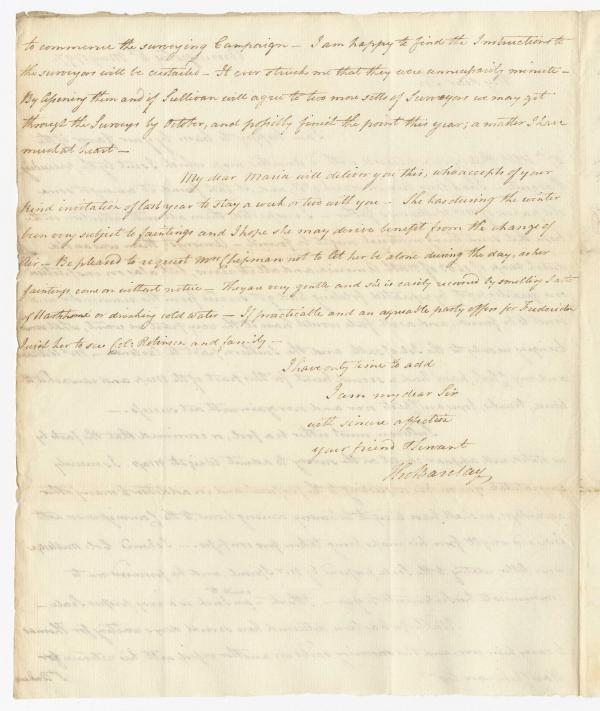 to commence the surveying Campaign – I am happy to find the Instructions to
the surveyors will be curtailed – It ever struck me that they were unnecessarily minute –
By lessening them and if Sullivan will agree to two more setts of Surveyors we may get
through the Surveys by October, and possibly finish the point this year; a matter I have
much at heart –
My dear Maria will deliver you this, who accepts of your
kind invitation of last year to stay a week or two with you – She has during the winter
been very subject to faintings and I hope she may derive benefit from the change of
air – Be pleased to request Mrs Chipman not to let her be alone during the day, as her
faintings come on without notice – They are very gentle and she is easily recovered by smelling Salts
of Hartshorne or drinking cold water – If practicable and an agreeable party offers for Fredericton
I wish her to see Col: Robinson and family –
I have only time to add
I am my dear Sir
with sincere affection
your friend & Servant
Tho Barclay